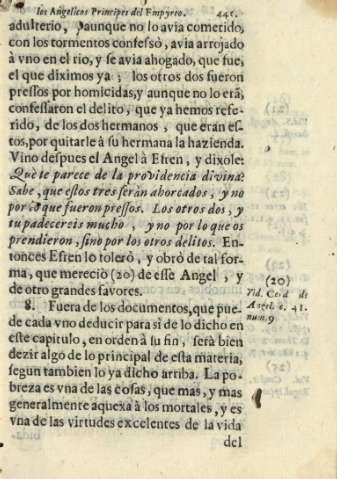 los Angelicos Principes del Empyreo. 441.
adulterio, y aunque no lo avia cometido,
con los tormentos confesò, avia arrojado
à vno en el rio, y se avia ahogado, que fue,
el que diximos ya; los otros dos fueron
pressos por homicidas, y aunque no lo erã,
confessaron el delito, que ya hemos refe-
rido, de los dos hermanos, que eran es-
tos, por quitarle à su hermana la hazienda.
Vino despues el Angel à Efren, y dixole:
Què te parece de la providencia divina?
Sabe, que estos tres seràn ahorcados, y no
por lo que fueron pressos. Los otros dos, y
tu padecereis mucho, y no por lo que os
prendieron, sino por los otros delitos. En-
tonces Efren lo tolerò, y obrò de tal for-
ma, que mereciò (20) de esse Angel, y
de otro grandes favores.
(20)
Vid. Cerd. de
Angel. c. 41.
num. 9.
8. Fuera de los documentos, que pue-
de cada vno deducir para si de lo dicho en
este capitulo, en orden à su fin, serà bien
dezir algo de lo principal de esta materia,
segun tambien lo ya dicho arriba. La po-
breza es vna de las cosas, que mas, y mas
generalmente aquexa à los mortales, y es
vna de las virtudes excelentes de la vida
del